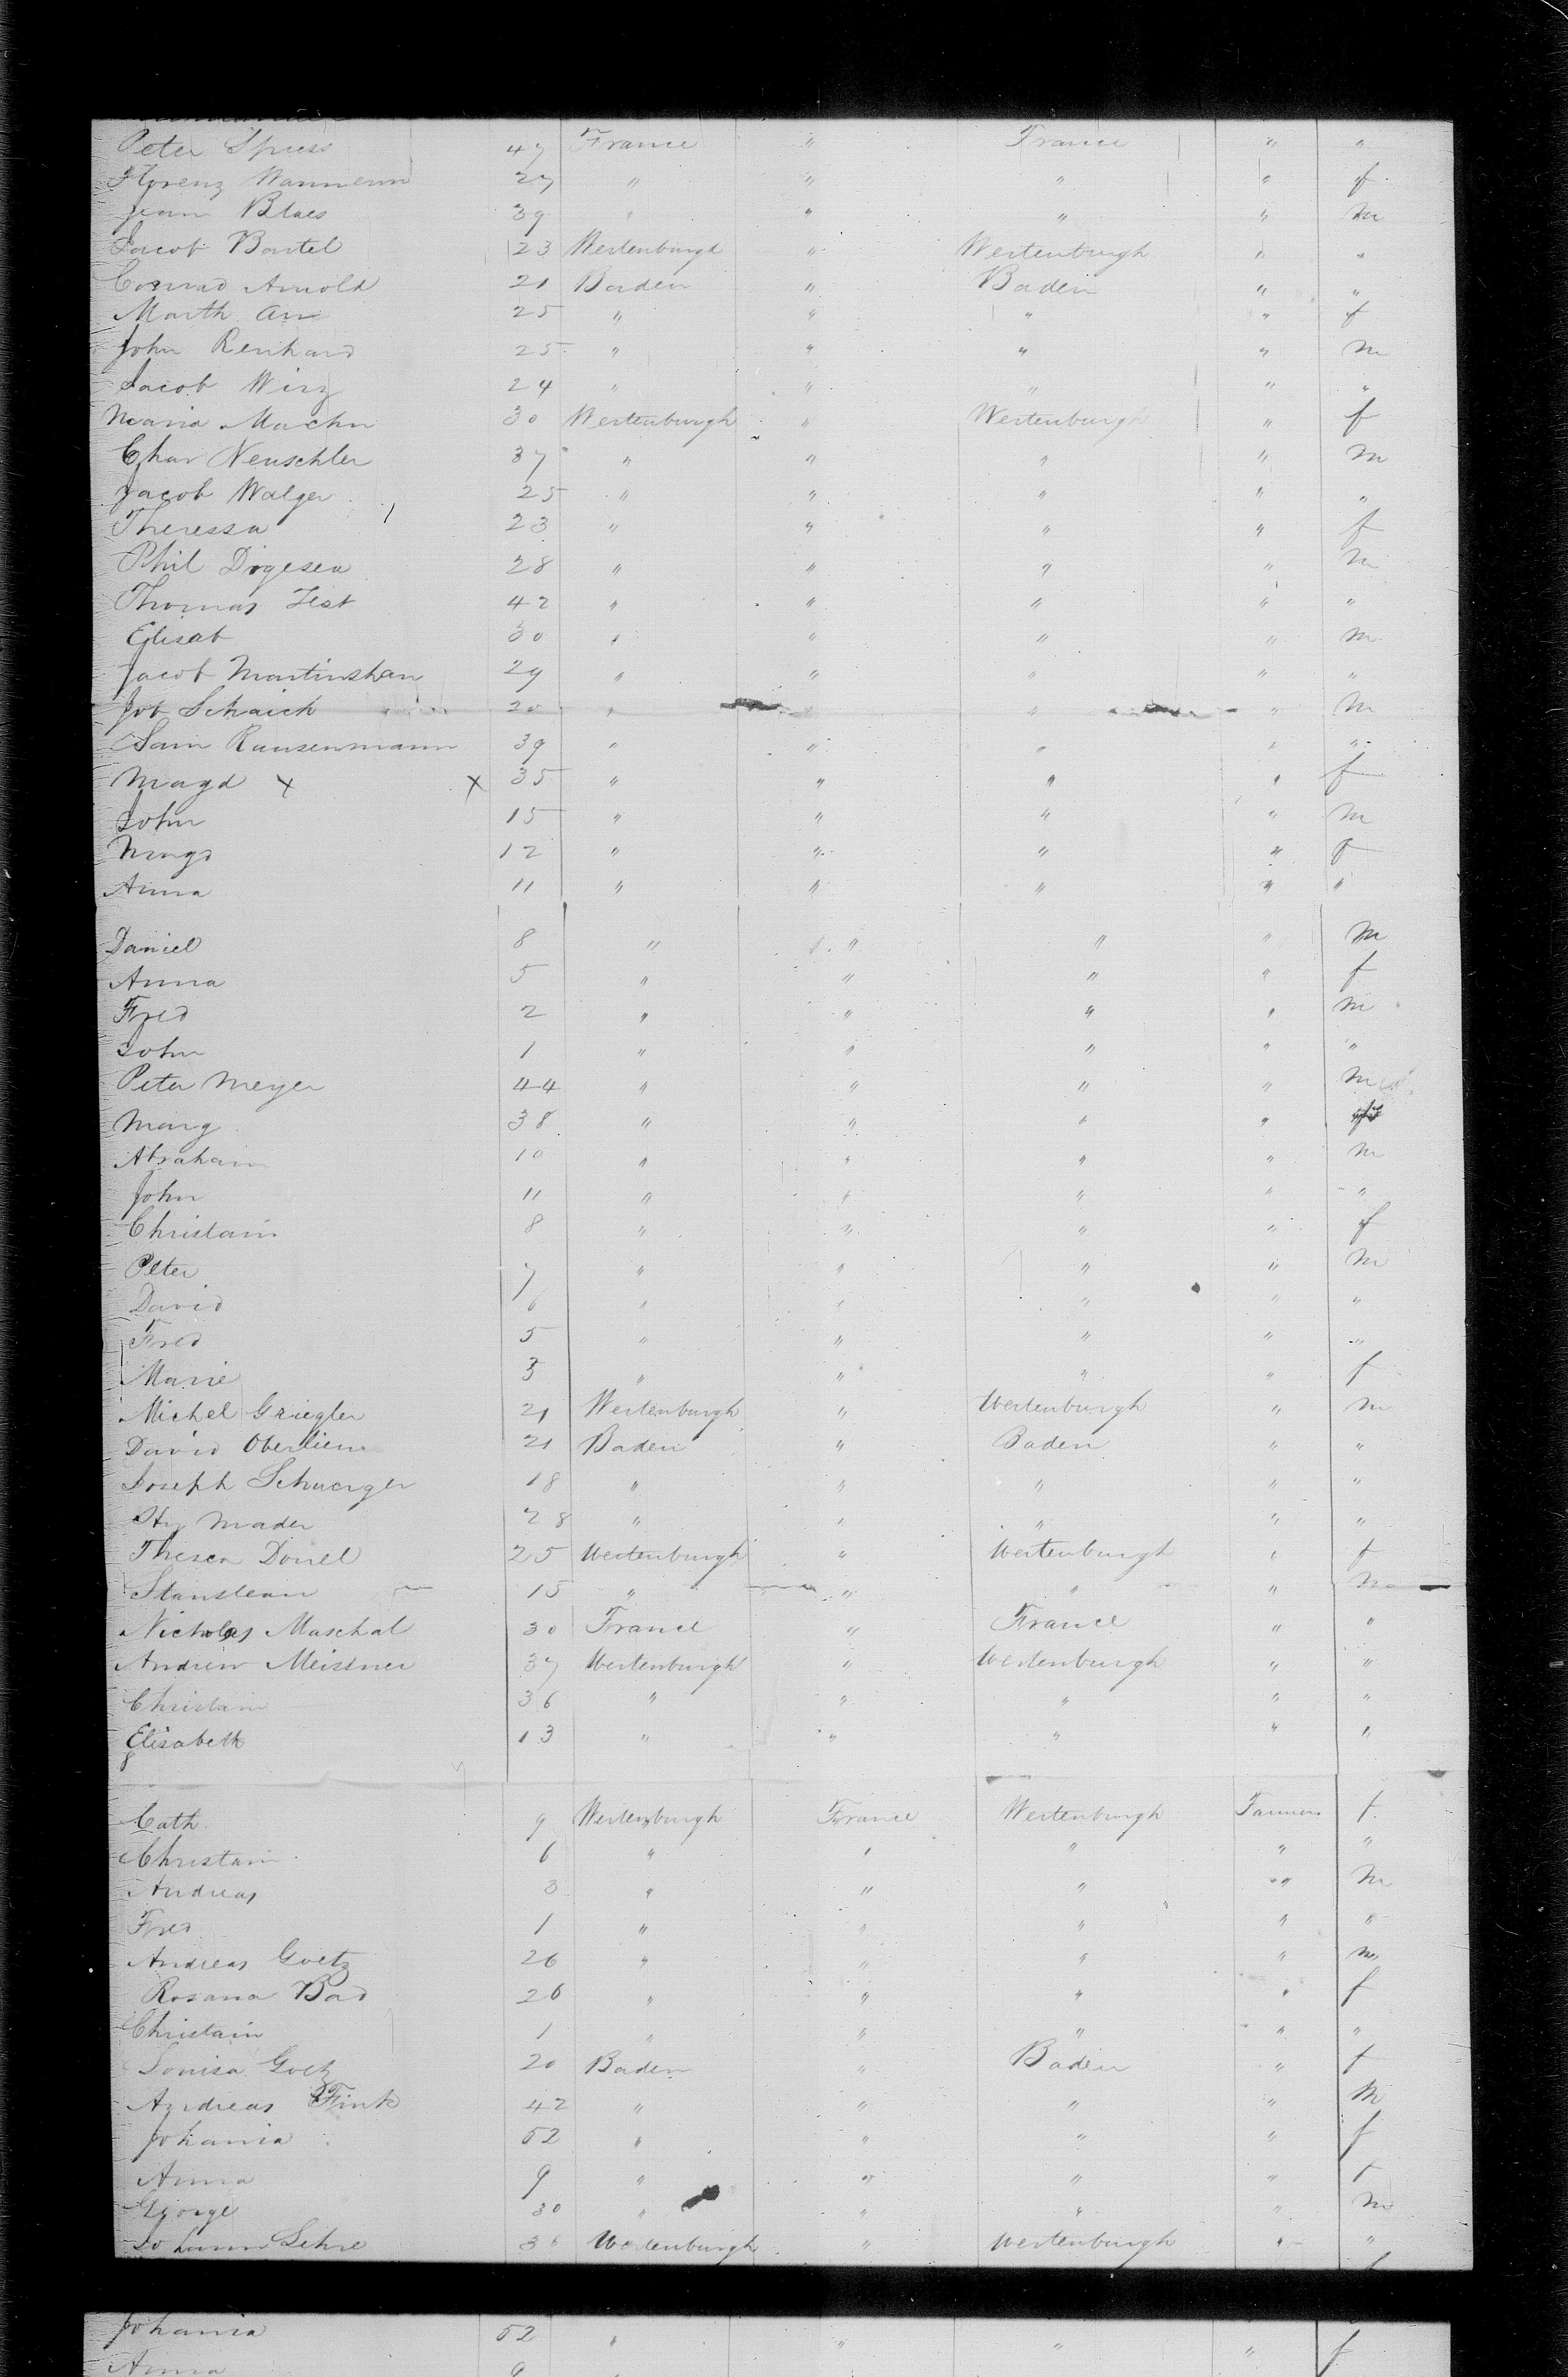 Peter Spiess 47 France " France " "
Florenz Wannemn 27 " " " " f
Jean Blaes 39 " " " " m
Jacob Bartel 23 Wertenburgh " Wertenburgh " "
Conrad Arnold 21 Baden " Baden " "
Marth An 25 " " " " f
John Renhard 25 " " " " m
Jacob Wirz 24 " " " " "
Maria Machn 30 Wertenburgh " Wertenburgh " f
Char Neuschler 37 " " " " m
Jacob Walger 25 " " " " "
Theressa 23 " " " " f
Phil Digesea 28 " " " " m
Thomas Jest 42 " " " " "
Elisab 30 " " " " m
Jacob Martinshan 29 " " " " "
Job Schaich 20 " " " " m
Sam Rausenmann 39 " " " " "
Magd x x 35 " " " " f
John 15 " " " " m
Magd 12 " " " " f
Anna 11 " " " " "
Daniel 8 " " " " m
Anna 5 " " " " f
Fred 2 " " " " m
John 1 " " " " "
Peter Meyer 44 " " " " m
Marg 38 " " " "
Abraham 10 " " " " m
John 11 " " " " "
Christain 8 " " " " f
Peter 7 " " " " m
David 6 " " " " "
Fred 5 " " " " "
Marie 3 " " " " f
Michel Griegler 21 Wertenburgh " Wertenburgh " m
David Oberlien 21 Baden " Baden " "
Joseph Schuerger 18 " " " " "
Hy Mader 28 " " " " "
Thesea Donel 25 Wertenburgh " Wertenburgh " f
Stanslean 15 " " " " m
Nicholas Maschal 30 France " France " "
Andrew Meistner 37 Wertenburgh " Wertenburgh " "
Christain 36 " " " " "
Elisabeth 13 " " " " "
Cath 9 Wertenburgh France Wertenburgh Farmers f
Christain 6 " " " " "
Andreas 3 " " " " m
Fred 1 " " " " "
Andreas Goetz 26 " " " " m
Rosana Bad 26 " " " " f
Christain 1 " " " " "
Louisa Goetz 20 Baden " Baden " f
Andreas Fink 42 " " " " m
Johania 52 " " " " f
Anna 9 " " " " f
George 30 " " " " m
Johann Sehre 36 Wertenburgh " Wertenburgh " "
Johania 52 " " " " f
Anna 9